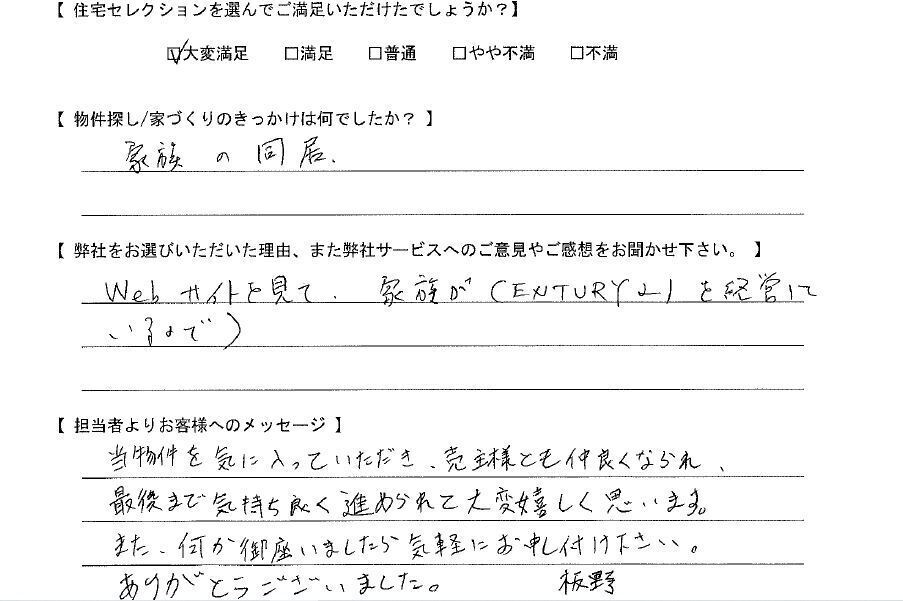 【 住宅セレクションを選んでご満足いただけたでしょうか?】
☑大変満足 □満足 □普通 □やや不満 □不満
【 物件探し/家づくりのきっかけは何でしたか? 】
家族の同居.
【 弊社をお選びいただいた理由、また弊社サービスへのご意見やご感想をお聞かせ下さい。 】
Webサイトを見て. 家族が(CENTURY21を経営して
いるので)
【 担当者よりお客様へのメッセージ 】
当物件を気に入っていただき、売主様とも仲良くなられ、
最後まで気持ち良く進められて大変嬉しく思います。
また、何か御座いましたら気軽にお申し付け下さい。
ありがとうございました。 板野